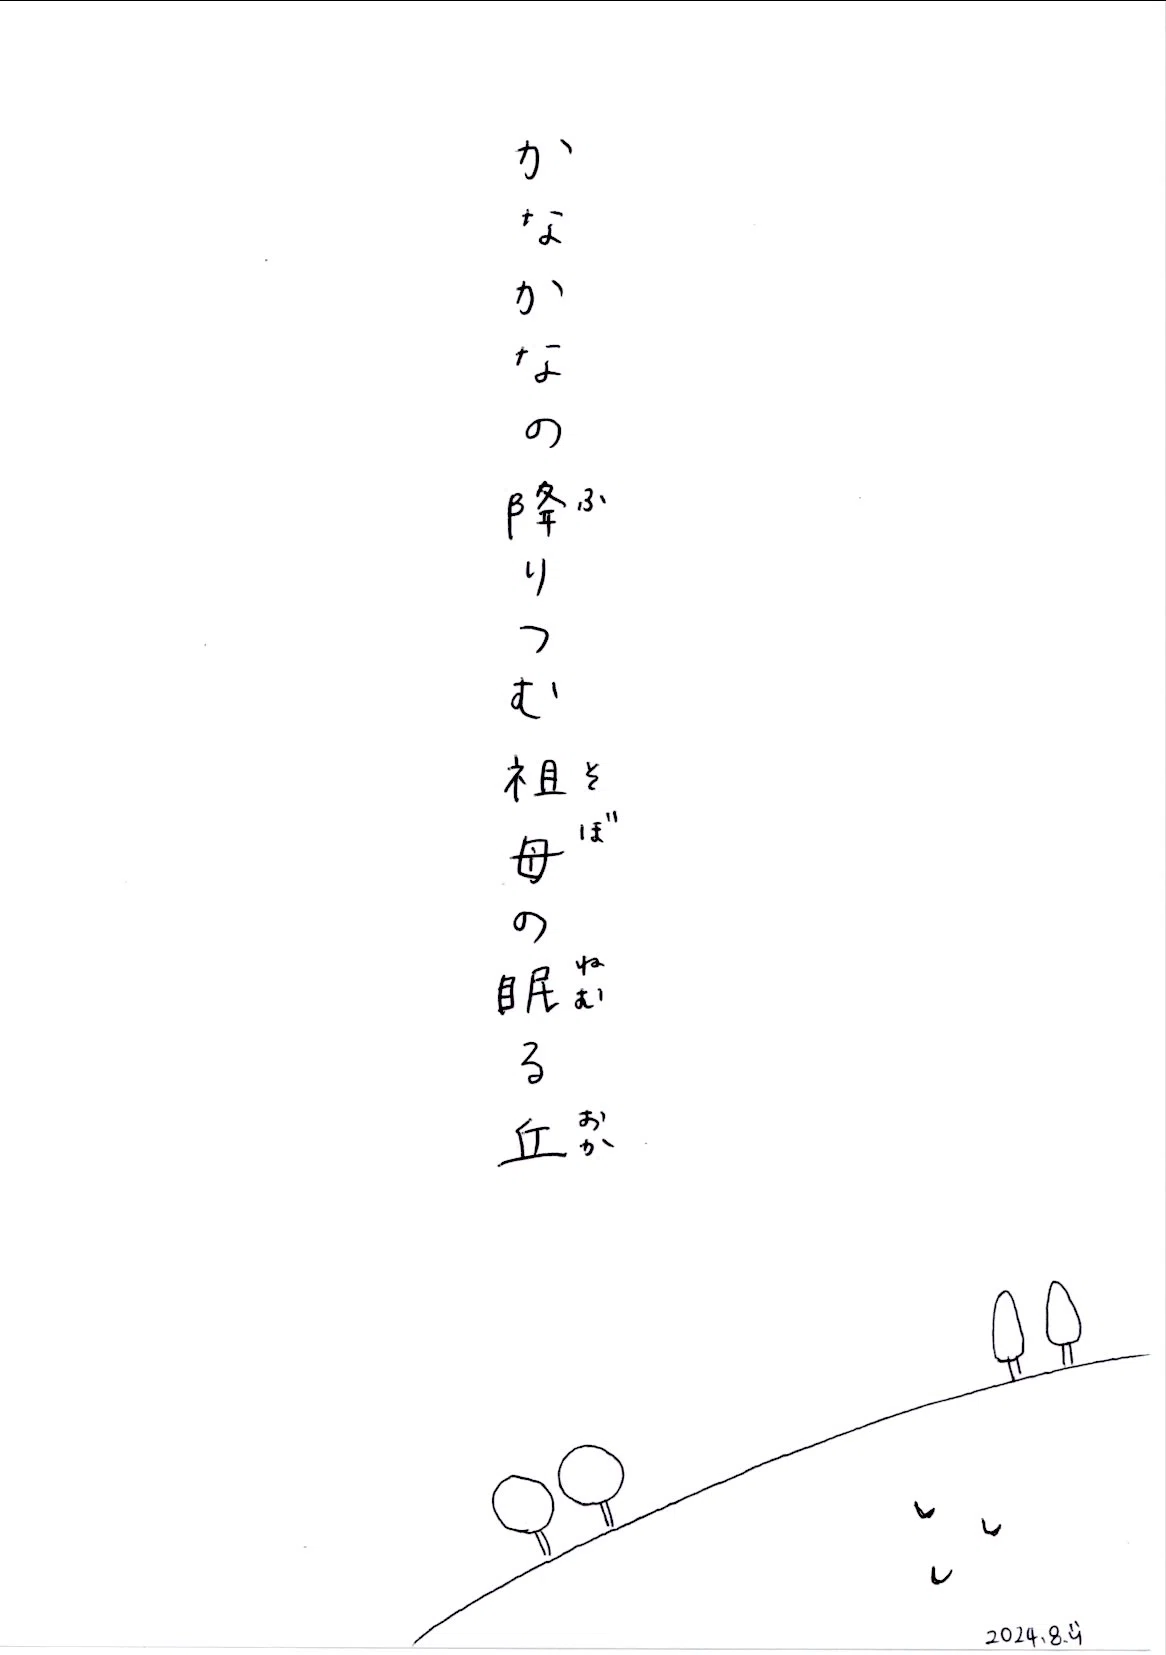 かなかなの降りつむ祖母の眠る丘
ふ
そぼ
ねむ
おか
2024.8.